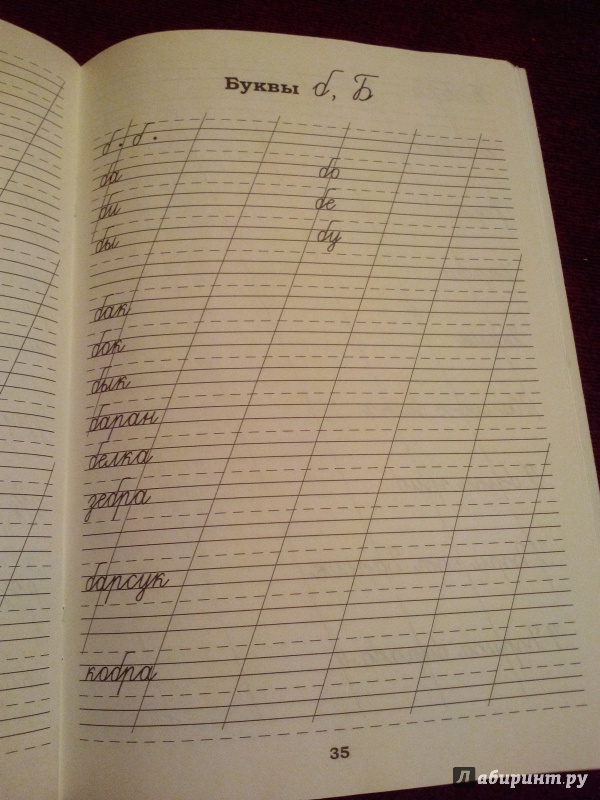 Буквы б, Б
б . б .
ба бо
би бе
бы бу
бак
бок
бык
баран
белка
зебра
барсук
кобра
35
Лабиринт.ру